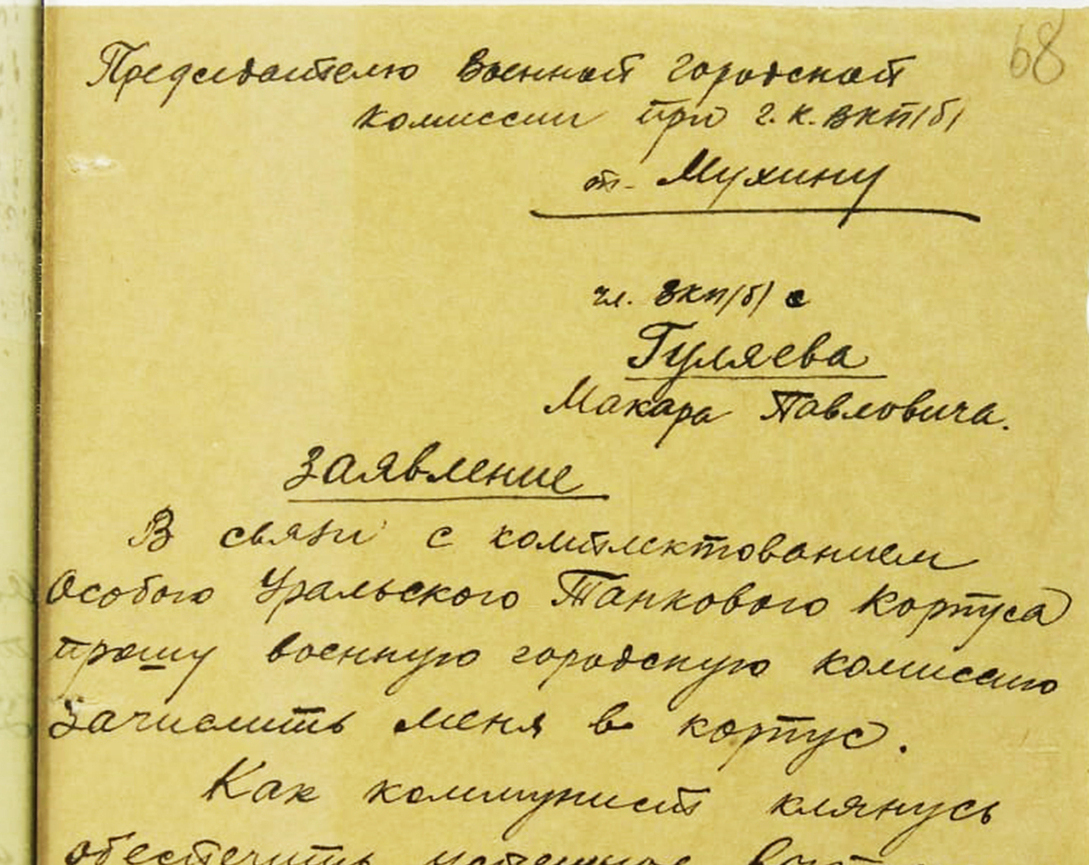 68
Председателю Военной городской
комиссии при г.к. ВКП/б/
т. Мухину
чл. ВКП/б/ с
Гуляева
Макара Павловича.
Заявление
В связи с комплектованием
Особого Уральского Танкового Корпуса
прошу военную городскую комиссию
зачислить меня в корпус.
Как коммунист клянусь
обеспечить успешное